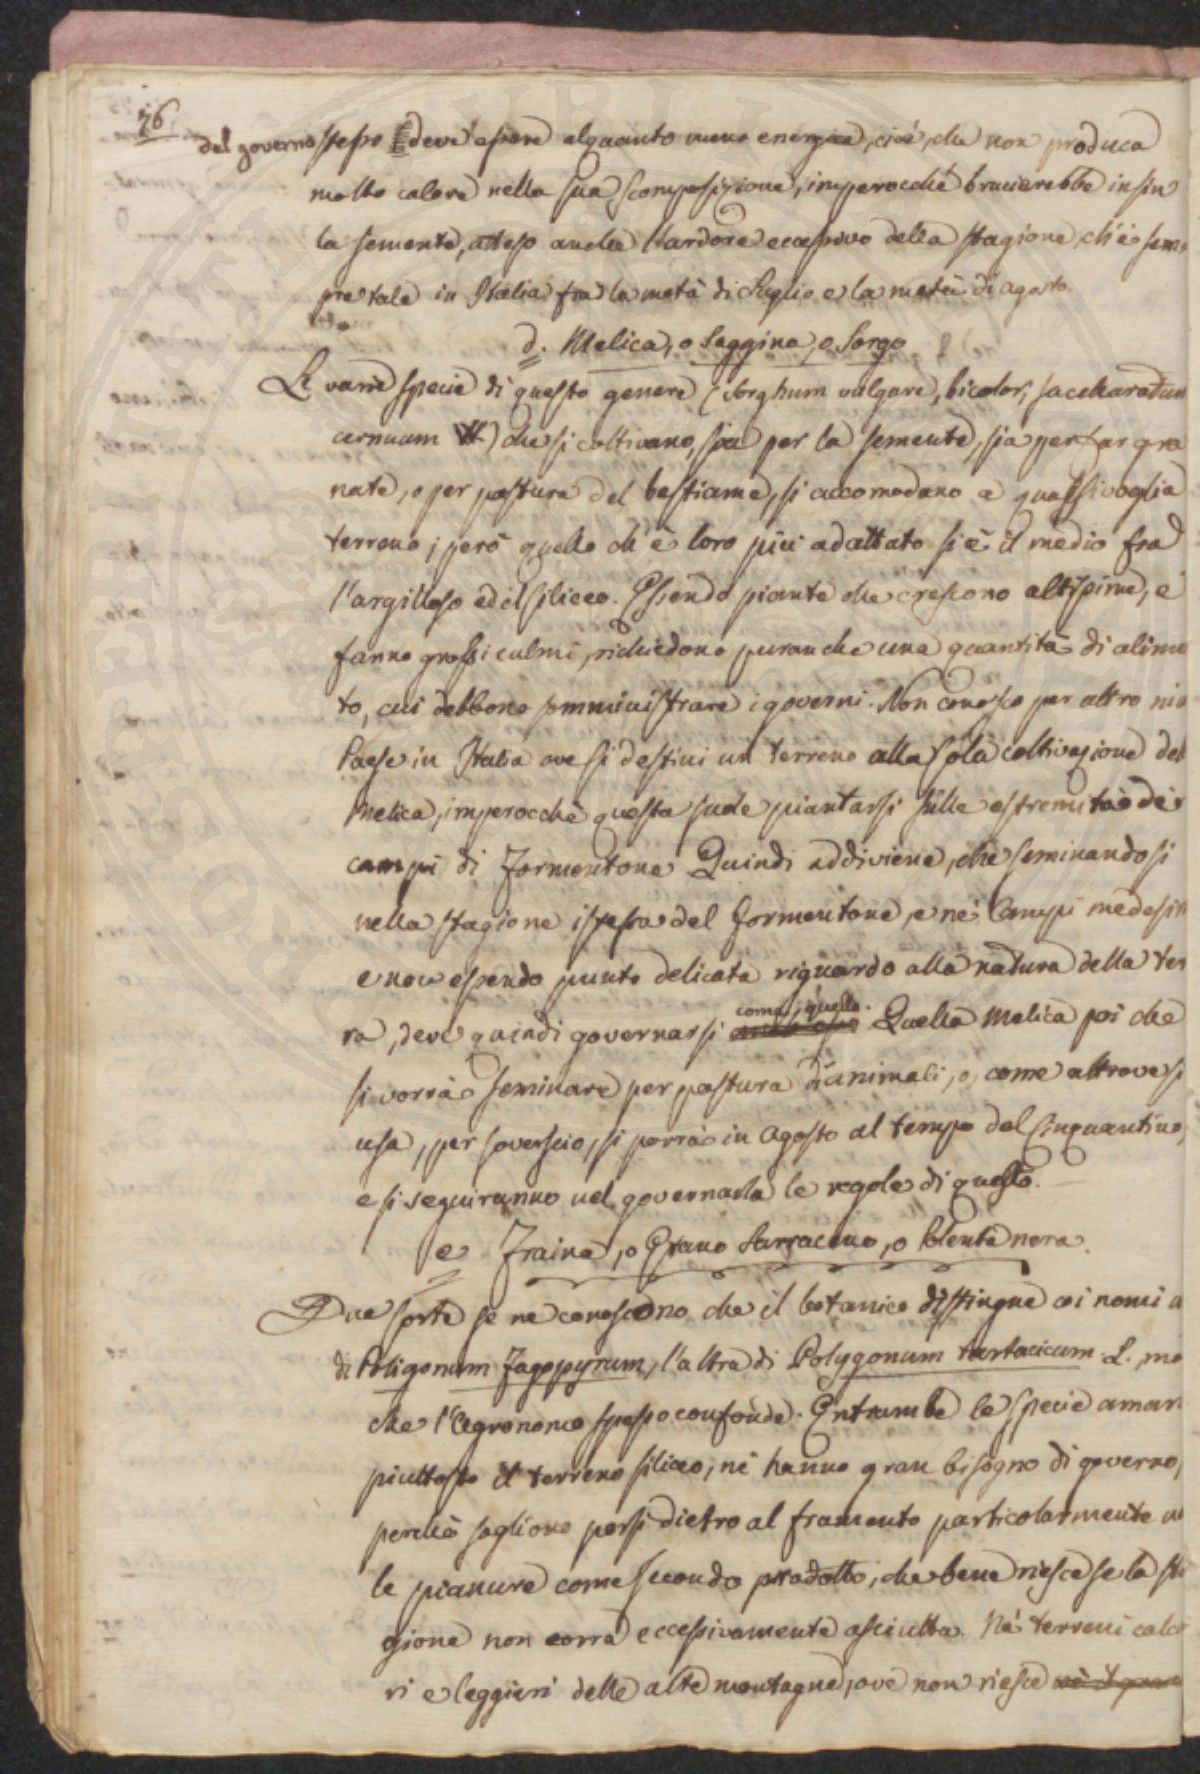 76
del governo stesso deve essere alquanto meno energica, cioè, che non produca
molto calore nella sua scomposizione, imperocchè brucierebbe insin
la semente, atteso anche l'ardore eccessivo della stagione, ch'è sem-
pre tale in Italia fra la metà di Luglio e la metà di agosto.
d. Melica, o Saggina, o Sorgo
Le varie specie di questo genere (Sorghum vulgare, bicolor, saccharatum
cernuum W.) che si coltivano, sia per la semente, sia per far gra
nate, o per pastura del bestiame, si accomodano a qualsivoglia
terreno; però quello ch'è loro più adattato si è il medio fra
l'argilloso ed il siliceo. Essendo piante che crescono altissime, e
fanno grossi culmi, richiedono puranche una quantità di alime
to, cui debbono somministrare i governi. Non conosco per altro niu
Paese in Italia ove si destini un terreno alla sola coltivazione del
Melica, imperocchè questa suole piantarsi sulle estremità de'
campi di Formentone. Quindi addiviene, che seminandosi
nella stagione istessa del formentone, e ne' Campi medesi
e non essendo punto delicata riguardo alla natura della ter
ra, deve quindi governarsi come quello. Quella Melica poi che
si vorrà seminare per pastura di animali, o, come altrove si
usa, per soverscio, si porrà in Agosto al tempo del Cinquantino,
e si seguiranno nel governarla le regole di questo.
e Fraina, o Grano Sarraceno, o Polenta nera.
Due sorte se ne conoscono che il botanico distingue coi nomi u
di Poligonum Fagopyrum, l'altra di Polygonum tartaricum L. ma
che l'Agronomo spesso confonde. Entrambe le specie aman
piuttosto il terreno siliceo, nè hanno gran bisogno di governo,
perchè sogliono porsi dietro al framento particolarmente ne
le pianure come secondo prodotto, che bene riesce se la sta
gione non corra eccessivamente asciutta. Ne' terreni calca
ri e leggieri delle alte montagne, ove non riesce